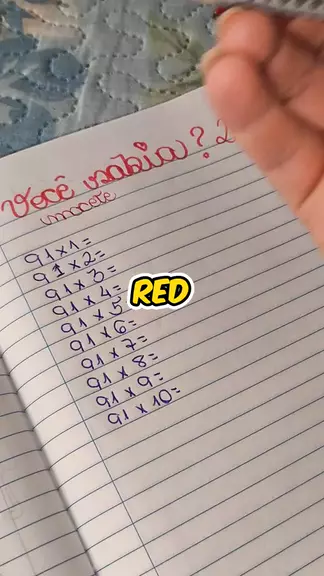 Você sabia? 2
macete
91x1=
91x2=
91x3=
91x4=
91x5
91x6=
91x7=
91x8=
91x9=
91x10=
RED